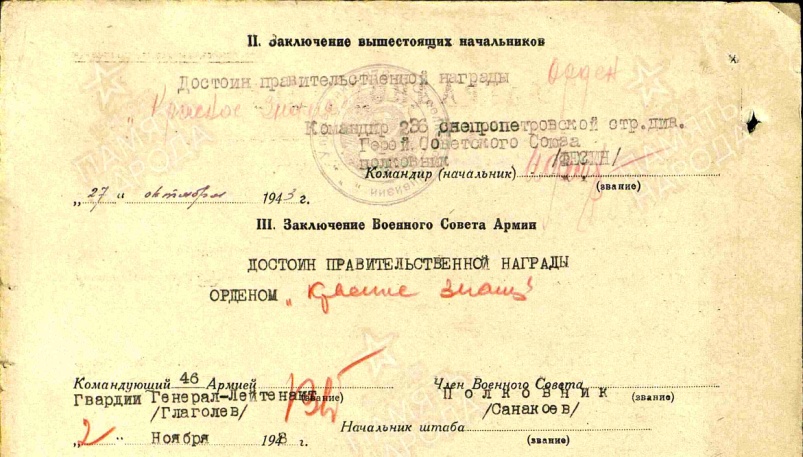 II. Заключение вышестоящих начальников
Достоин правительственной награды Орден
"Красное Знамя"
Командир 236 Днепропетровской стр.див.
Герой Советского Союза
полковник /ФЕСИН/
Командир (начальник)
(звание)
„27 " октября 1943 г.
III. Заключение Военного Совета Армии
ДОСТОИН ПРАВИТЕЛЬСТВЕННОЙ НАГРАДЫ
ОРДЕНОМ „Красное Знамя"
Командующий 46 Армией
Гвардии Генерал-Лейтенант (звание)
/Глаголев/
Член Военного Совета
Полковник (звание)
/Санакоев/
„2 " Ноября 1943 г.
Начальник штаба
(звание)